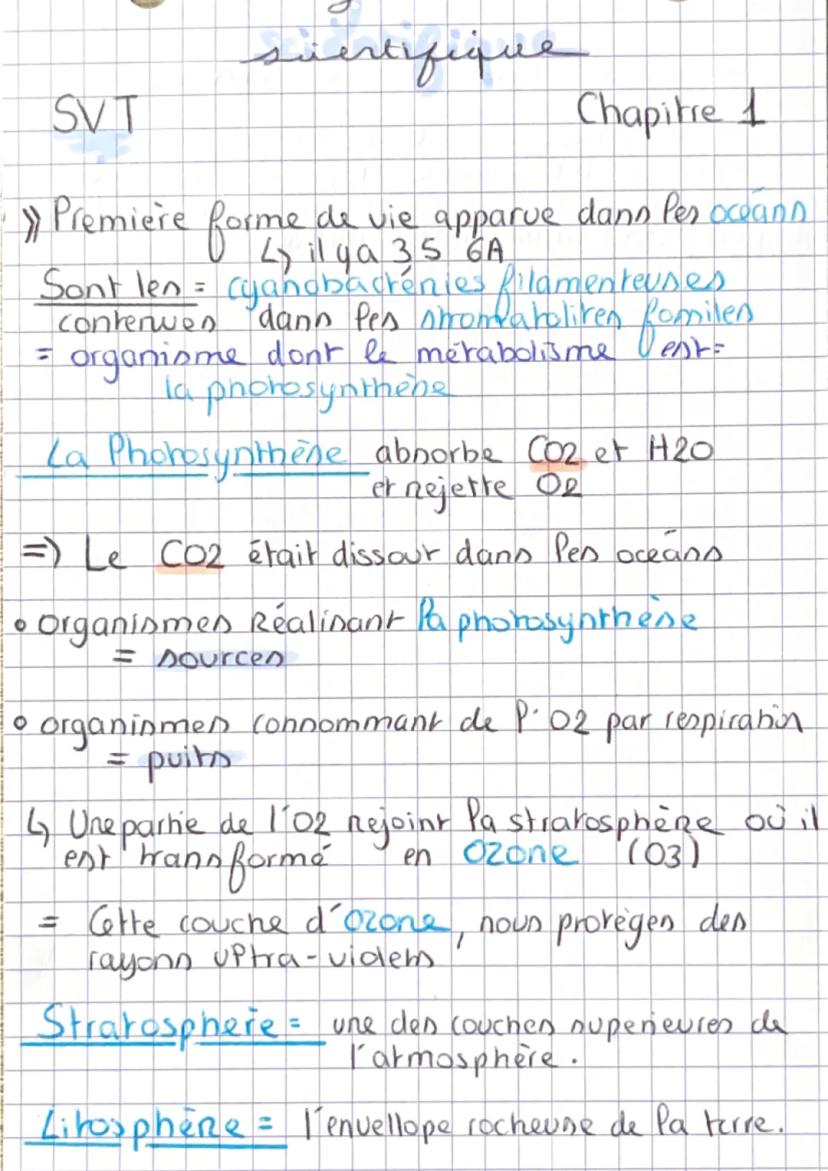 scientifique
SVT Chapitre 1
» Premiere forme de vie apparue dans les océans
↳ il y a 3,5 GA
Sont les = cyanobactéries filamenteuses
contenues dans les stromatolites fossiles
= organisme dont le métabolisme est =
la photosynthèse
La Photosynthèse absorbe CO2 et H2O
et rejette O2
=> Le CO2 était dissout dans les océans
• organismes Réalisant la photosynthèse
= sources
• organismes consommant de l'O2 par respiration
= puits
↳ Une partie de l'O2 rejoint la stratosphère où il
est transformé en Ozone (O3)
= Cette couche d'ozone, nous protèges des
rayons ultra-violets
Stratosphere = une des couches superieures de
l'atmosphère.
Litosphère = l'envellope rocheuse de la terre.